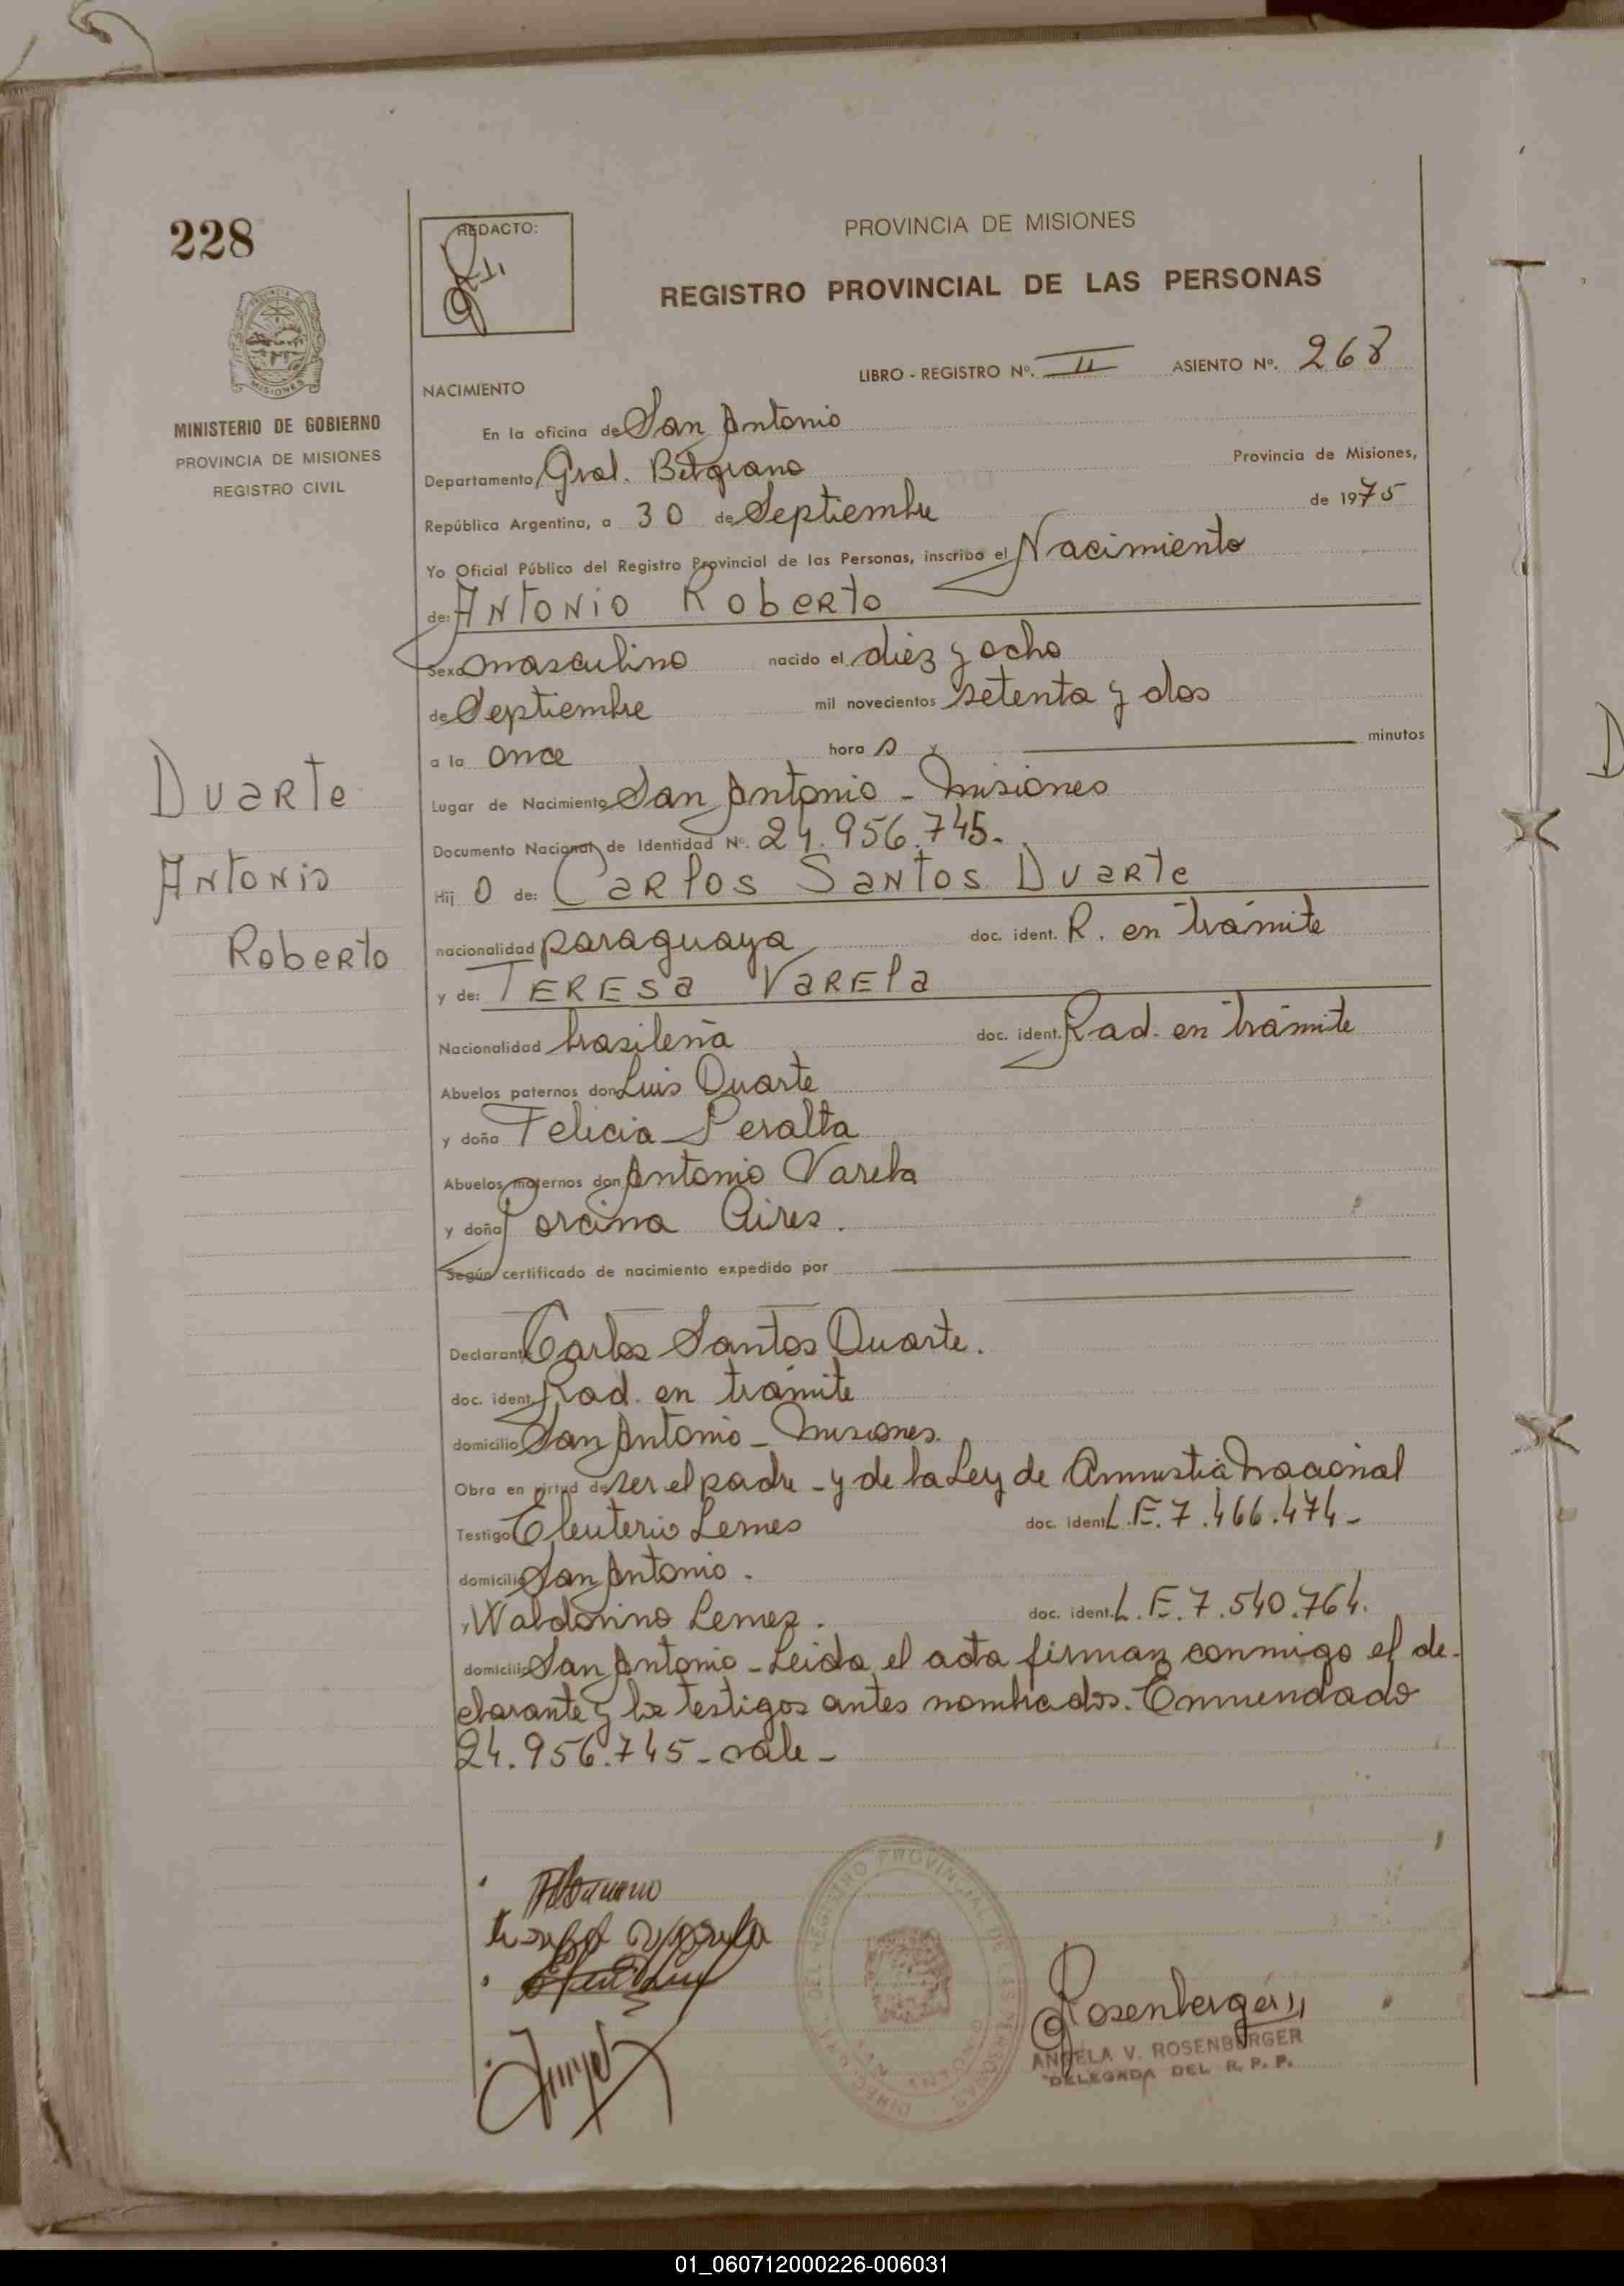 228
MINISTERIO DE GOBIERNO
PROVINCIA DE MISIONES
REGISTRO CIVIL
Duarte
Antonio
Roberto
REDACTO:
PROVINCIA DE MISIONES
REGISTRO PROVINCIAL DE LAS PERSONAS
LIBRO - REGISTRO Nº. II ASIENTO Nº. 268
NACIMIENTO
En la oficina de San Antonio
Departamento Gral. Belgrano Provincia de Misiones,
República Argentina, a 30 de Septiembre de 1975
Yo Oficial Público del Registro Provincial de las Personas, inscribo el Nacimiento
de: Antonio Roberto
Sexo masculino nacido el diez y ocho
de Septiembre mil novecientos setenta y dos
a la once hora s y minutos
Lugar de Nacimiento San Antonio - Misiones
Documento Nacional de Identidad Nº. 24.956.745-
Hij o de: Carlos Santos Duarte
nacionalidad paraguaya doc. ident. R. en trámite
y de: Teresa Varela
Nacionalidad brasileña doc. ident. Rad. en trámite
Abuelos paternos don Luis Duarte
y doña Felicia Peralta
Abuelos maternos don Antonio Varela
y doña Porcina Aires.
Según certificado de nacimiento expedido por
Declarante Carlos Santos Duarte.
doc. ident. Rad. en trámite
domicilio San Antonio - Misiones.
Obra en virtud de ser el padre - y de la Ley de Amnistia Nacional
Testigo Eleuterio Lemes doc. ident. L.E. 7.466.474-
domicilio San Antonio.
y Waldonino Lemes. doc. ident. L.E. 7.540.764.
domicilio San Antonio - Leida el acta firman conmigo el de-
clarante y los testigos antes nombrados. Enmendado
24.956.745 - vale -
DIRECCION DEL REGISTRO PROVINCIAL DE LAS PERSONAS
Rosenberger
ANGELA V. ROSENBERGER
DELEGADA DEL R. P. P.
01_060712000226-006031